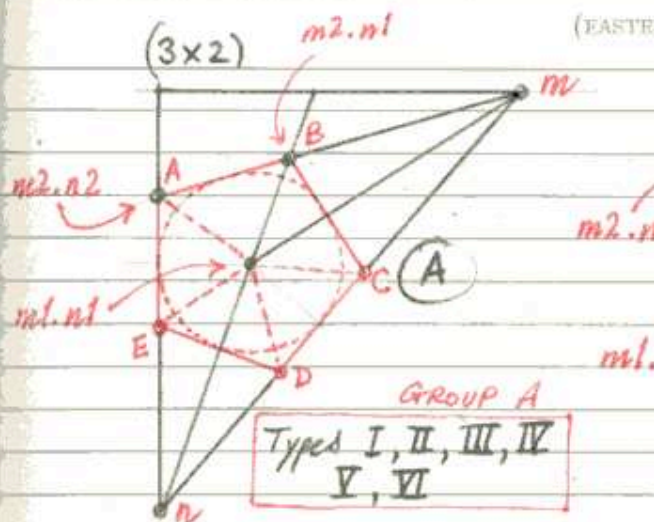 (EASTE
m2.n1
(3×2)
m
B
A
m2.n2
m2.n
C
A
m1.n1
E
m1.
D
GROUP A
Types I, II, III, IV
V, VI
n